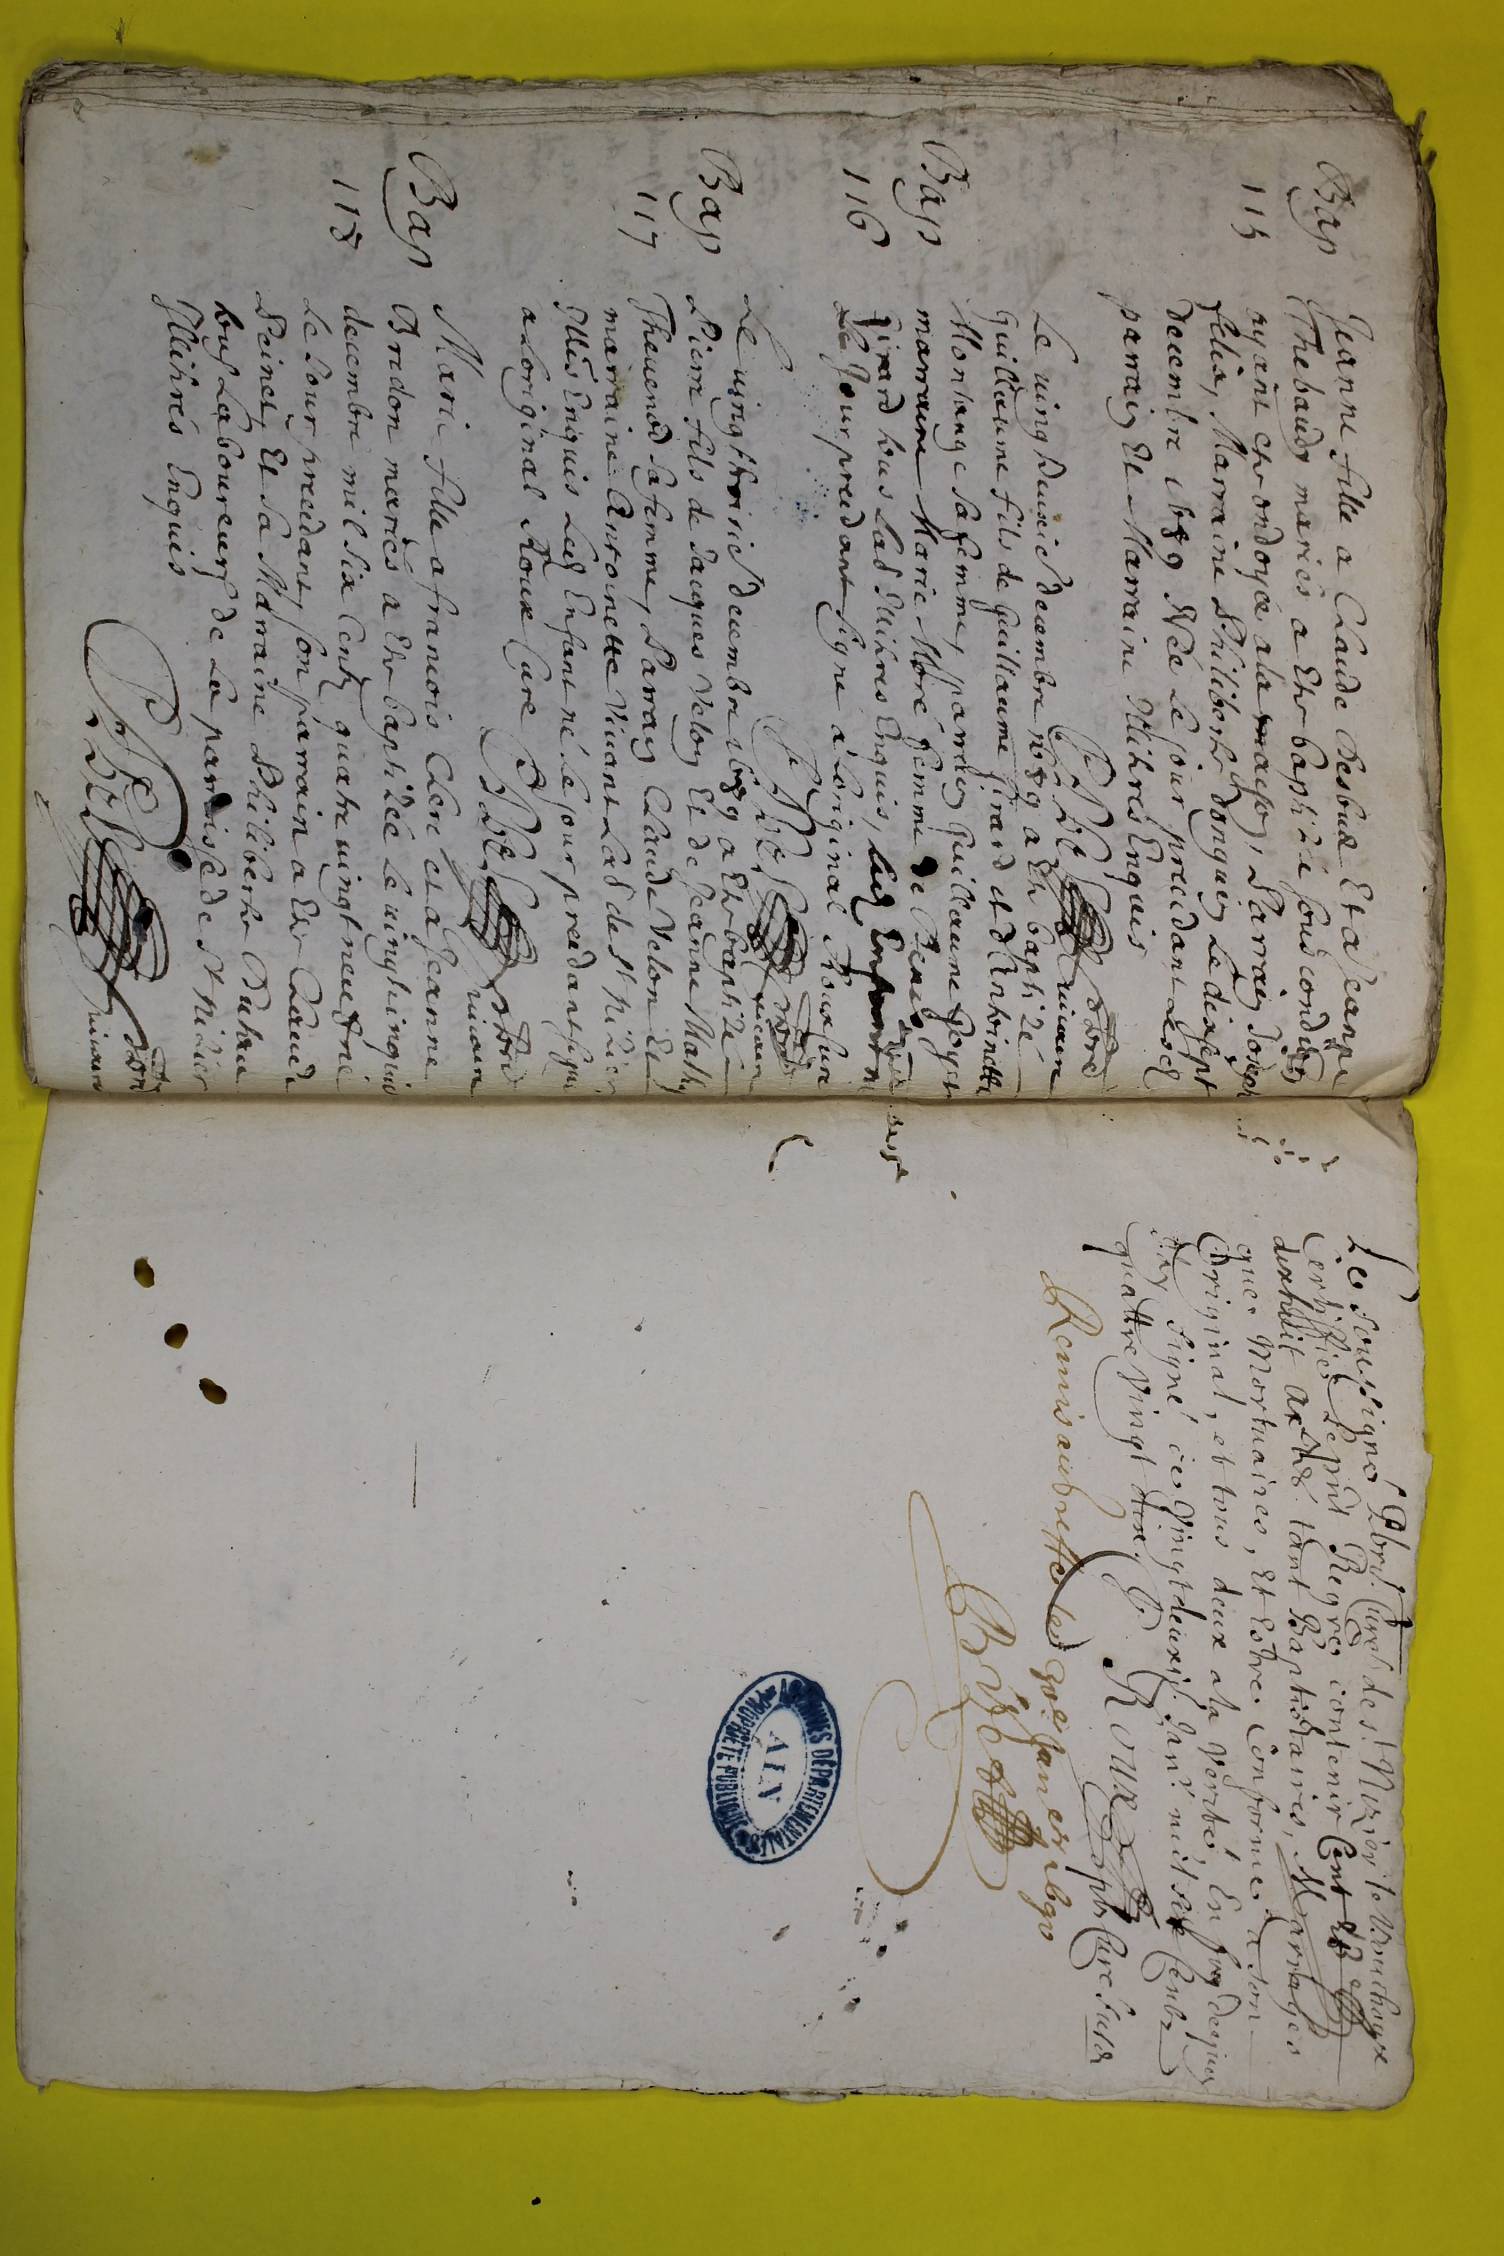 Bap
115
Jeanne fille a Claude Desbut Et a Jeanne
Thebaudy mariés a Ete baptizé sous condition
ayant ete ondoyée a la maison, Parrain Joseph
felix, Marraine Philiberte donguy Le dixsept
decembre 1689 Née le jour precedant Lesd
parrain Et Marraine Illitrés Enquis
vicaire
Bap
116
Le vingtdeuxie decembre 1689 a Ete baptizé
Guillaume fils de Guillaume Girard et d Antoinette
Montange sa femme, parrain Guillaume
marraine Marie Moré femme de
Girard tous Lesd Illitres Enquis, led Enfant né
Le Jour precedant signe a Loriginal Roux Cure
vicaire
Bap
117
Le vingttroisie decembre 1689 a Ete baptizé
Pierre fils de Jacques Velon Et de Jeanne
Thevenod sa femme, Parrain Claude Velon Et
marraine Antoinette Vivant Lesd de st nizier
Illitrés Enquis Led Enfant né le jour precedant signe
a Loriginal Roux Cure
vicaire
Bap
118
Marie fille a francois Clere et a Jeanne
Bredon mariés a Ete baptizée Le vingtcinquie
decembre mil six Cents quatre vingt neuf née
Le Jour precedant, son parrain a Ete Claude
Peinet Et sa Marraine Philiberte
tous Laboureurs de La parroisse de st nizier
Illitrés Enquis
vicaire
Le soussigné Pbre Curé de st Nizier le Bouchoux
Certiffie Le pnt Regre contenir Cent
dixhuit actes tant Baptistaires, Mariages
que Mortuaires, Et Estre Conforme a son
Original, et tous deux a la verité, En foy dequoy
Jay signé ce vingtdeuxie Janr mil six Cents
quattre vingt dix. Roux pbr Cure susd
Remis au greffe led Janvier 1690
ARCHIVES DÉPARTEMENTALES
AIN
PROPRIÉTÉ PUBLIQUE